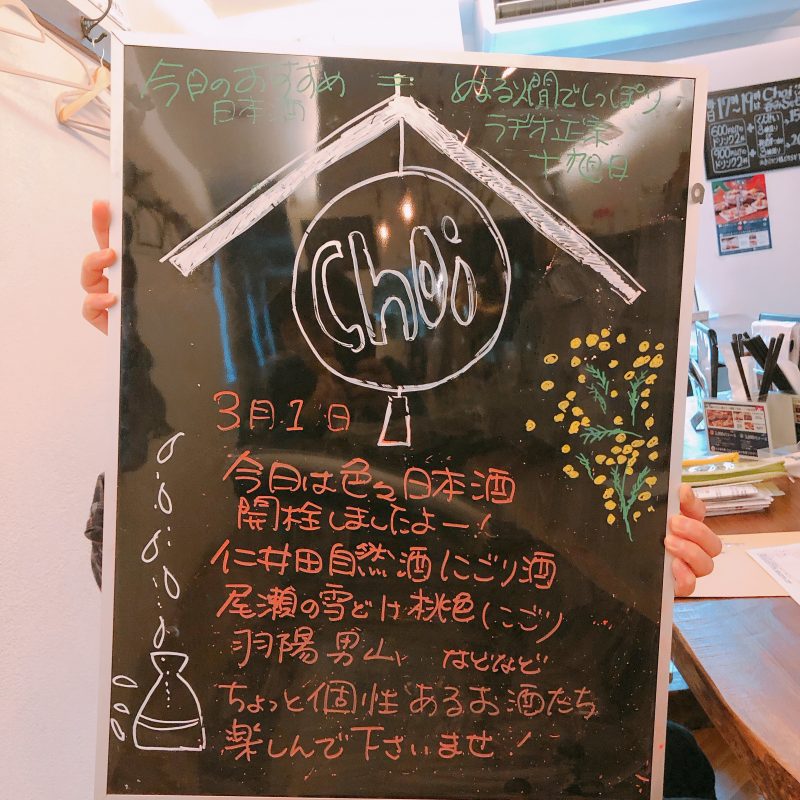 今日のおすすめ
日本酒
ぬる燗でしっぽり
ラヂオ正宗
十旭日
Choi
3月1日
今日は色々日本酒
開栓しましたよー!
仁井田自然酒にごり酒
尾瀬の雪どけ桃色にごり
羽陽男山 などなど
ちょっと個性あるお酒たち
楽しんで下さいませ!
17時19時 Choi
600円
ドリンク2杯
900円
ドリンク2杯